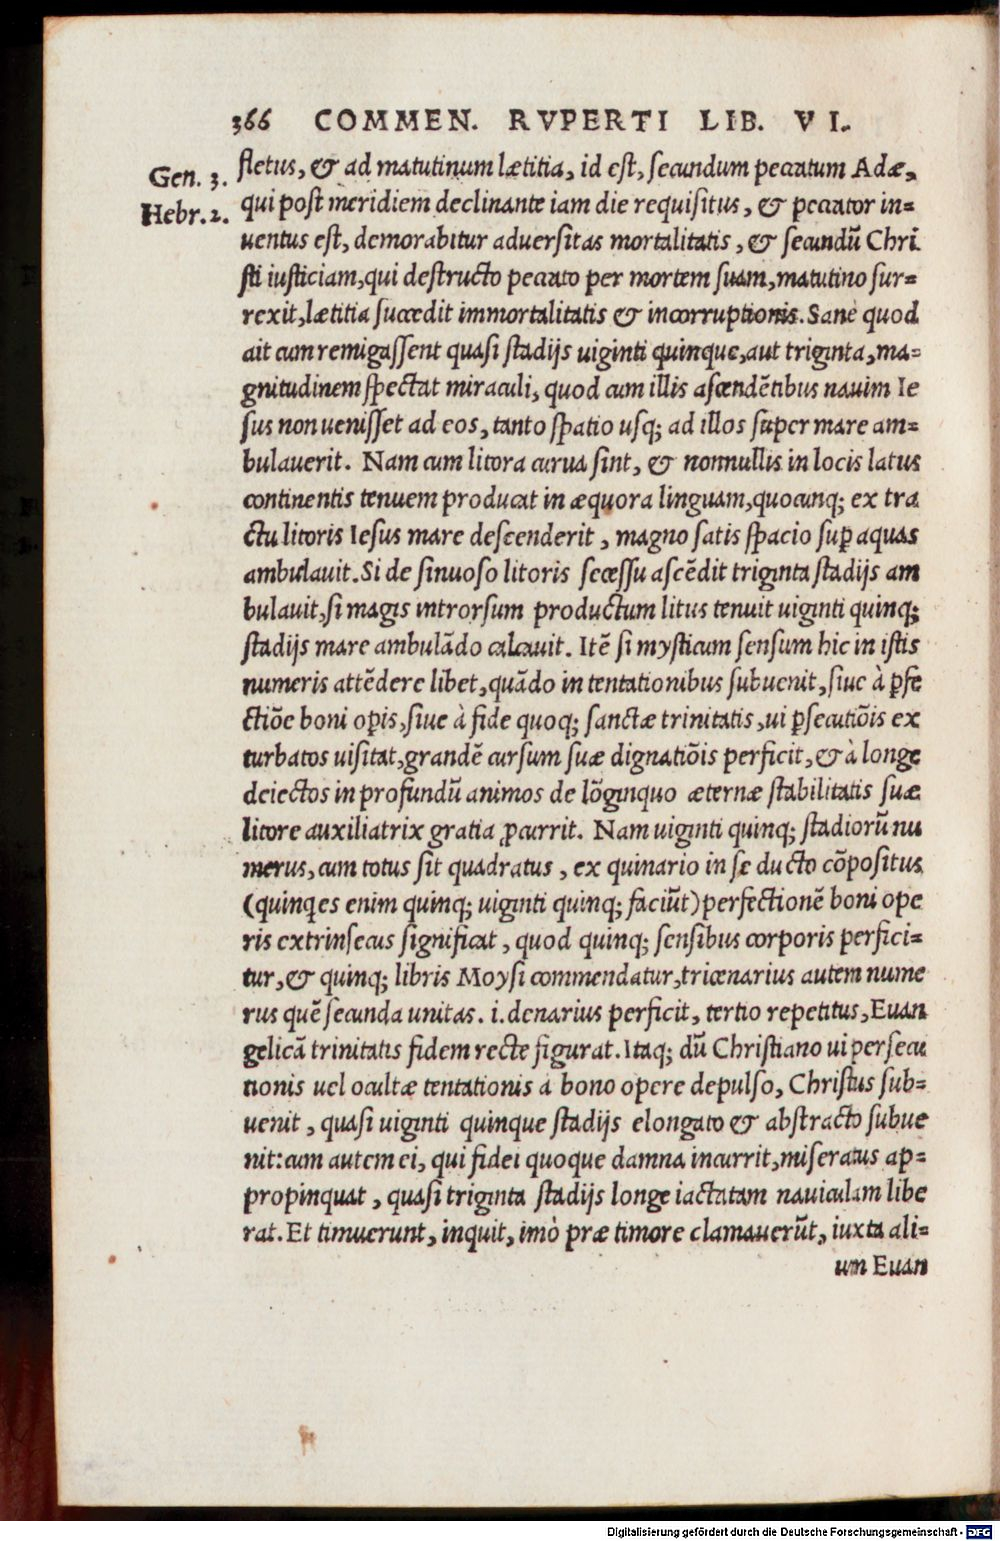 366 COMMEN. RVPERTI LIB. VI.
Gen. 3.
Hebr. 2.
fletus, & ad matutinum lætitia, id est, secundum peccatum Adæ,
qui post meridiem declinante iam die requisitus, & peccator in=
uentus est, demorabitur aduersitas mortalitatis, & secundũ Chri
sti iusticiam, qui destructo peccato per mortem suam, matutino sur=
rexit, lætitia succedit immortalitatis & incorruptionis. Sanè quod
ait cum remigassent quasi stadijs uiginti quinque, aut triginta, ma=
gnitudinem spectat miraculi, quod cum illis ascendẽtibus nauim Ie
sus non uenisset ad eos, tanto spatio usq; ad illos super mare am=
bulauerit. Nam cum litora curua sint, & nonnullis in locis latus
continentis tenuem producat in æquora linguam, quocunq; ex tra
ctu litoris Iesus mare descenderit, magno satis spacio sup̱ aquas
ambulauit. Si de sinuoso litoris secessu ascẽdit triginta stadijs am
bulauit, si magis introrsum productum litus tenuit uiginti quinq;
stadijs mare ambulãdo calcauit. Itẽ si mysticum sensum hic in istis
numeris attẽdere libet, quãdo in tentationibus subuenit, siue à p̱fe
ctiõe boni op̱is, siue à fide quoq; sanctæ trinitatis, ui p̱secutiõis ex
turbatos uisitat, grandẽ cursum suæ dignatiõis perficit, & à longe
deiectos in profundũ animos de lõginquo æternæ stabilitatis suæ
litore auxiliatrix gratia ꝓcurrit. Nam uiginti quinq; stadiorũ nu
merus, cum totus sit quadratus, ex quinario in se ducto cõpositus
(quinqes enim quinq; uiginti quinq; faciũt) perfectionẽ boni ope
ris extrinsecus significat, quod quinq; sensibus corporis perfici=
tur, & quinq; libris Moysi commendatur, tricenarius autem nume
rus quẽ secunda unitas. i. denarius perficit, tertio repetitus, Euan
gelicã trinitatis fidem recte figurat. Itaq; dũ Christiano ui persecu
tionis uel ocultæ tentationis a bono opere depulso, Christus sub=
uenit, quasi uiginti quinque stadijs elongato & abstracto subue
nit: cum autem ei, qui fidei quoque damna incurrit, miseratus ap=
propinquat, quasi triginta stadijs longe iactatam nauiculam libe
rat. Et timuerunt, inquit, imò præ timore clamauerũt, iuxta ali=
um Euan
Digitalisierung gefördert durch die Deutsche Forschungsgemeinschaft - DFG